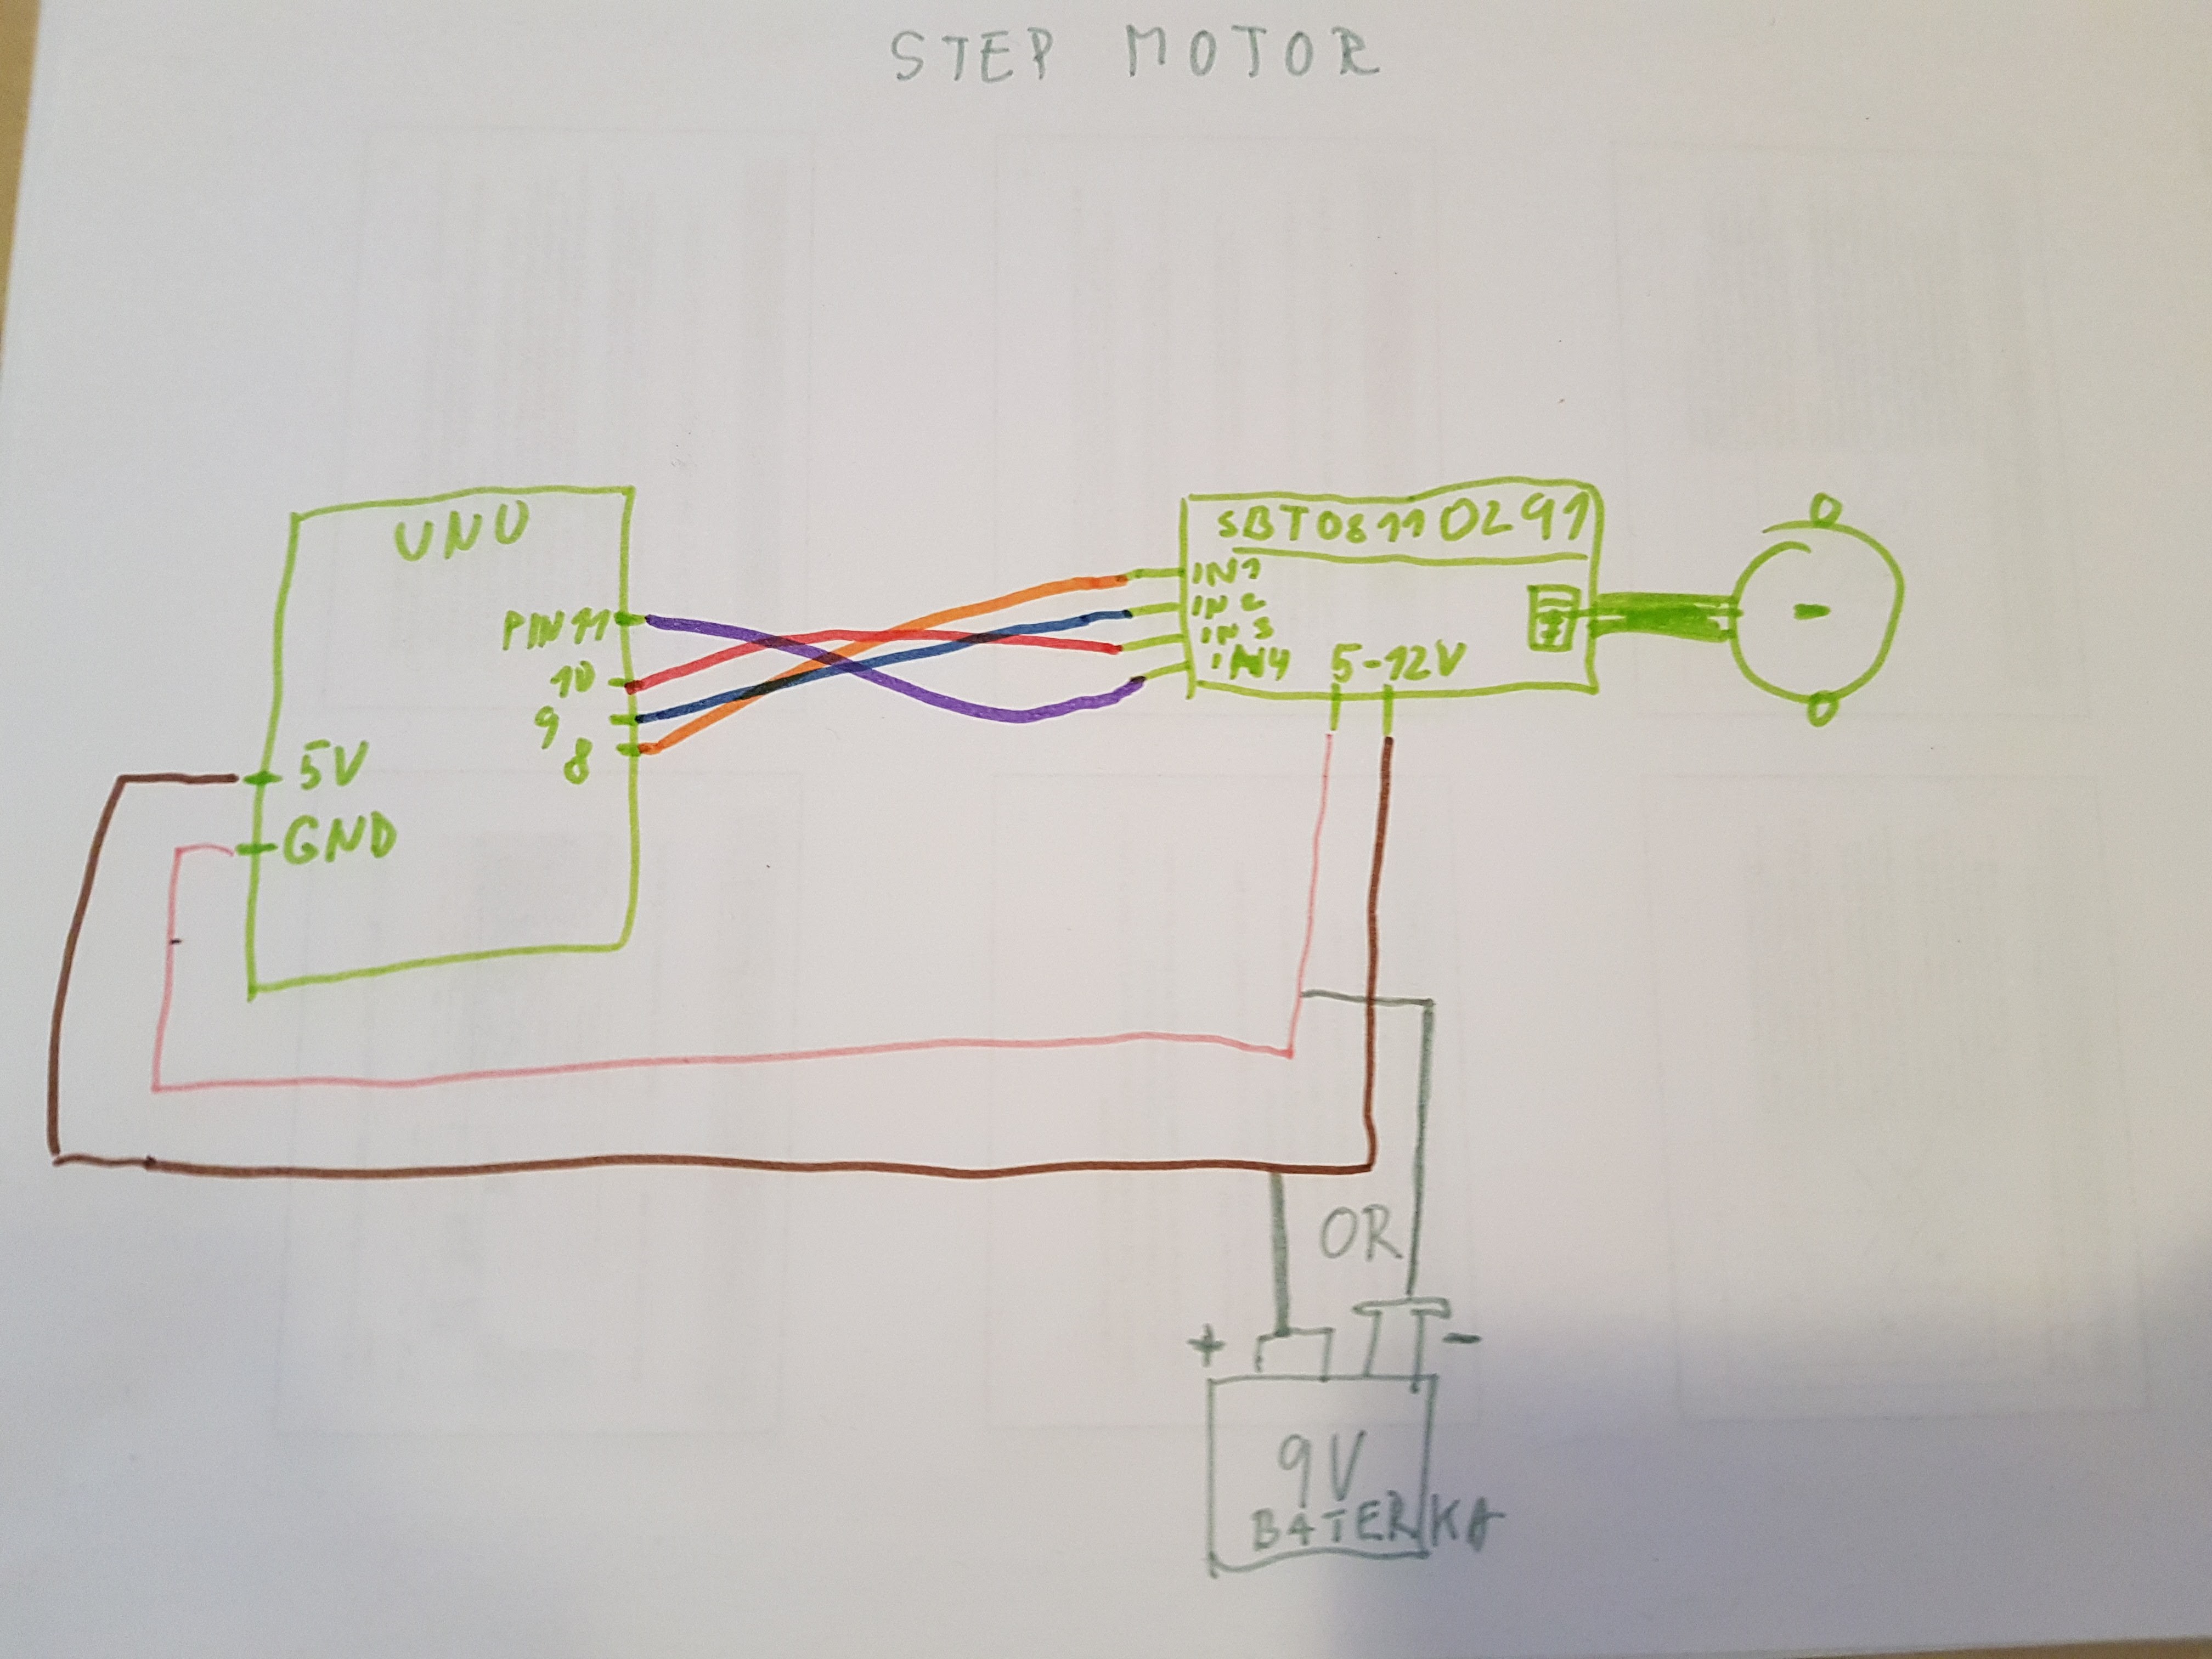 STEP MOTOR
UNO
PIN 11
10
9
8
5V
GND
SBT0811 0291
IN1
IN2
IN3
IN4
5-12V
OR
+ -
9V
BATERKA